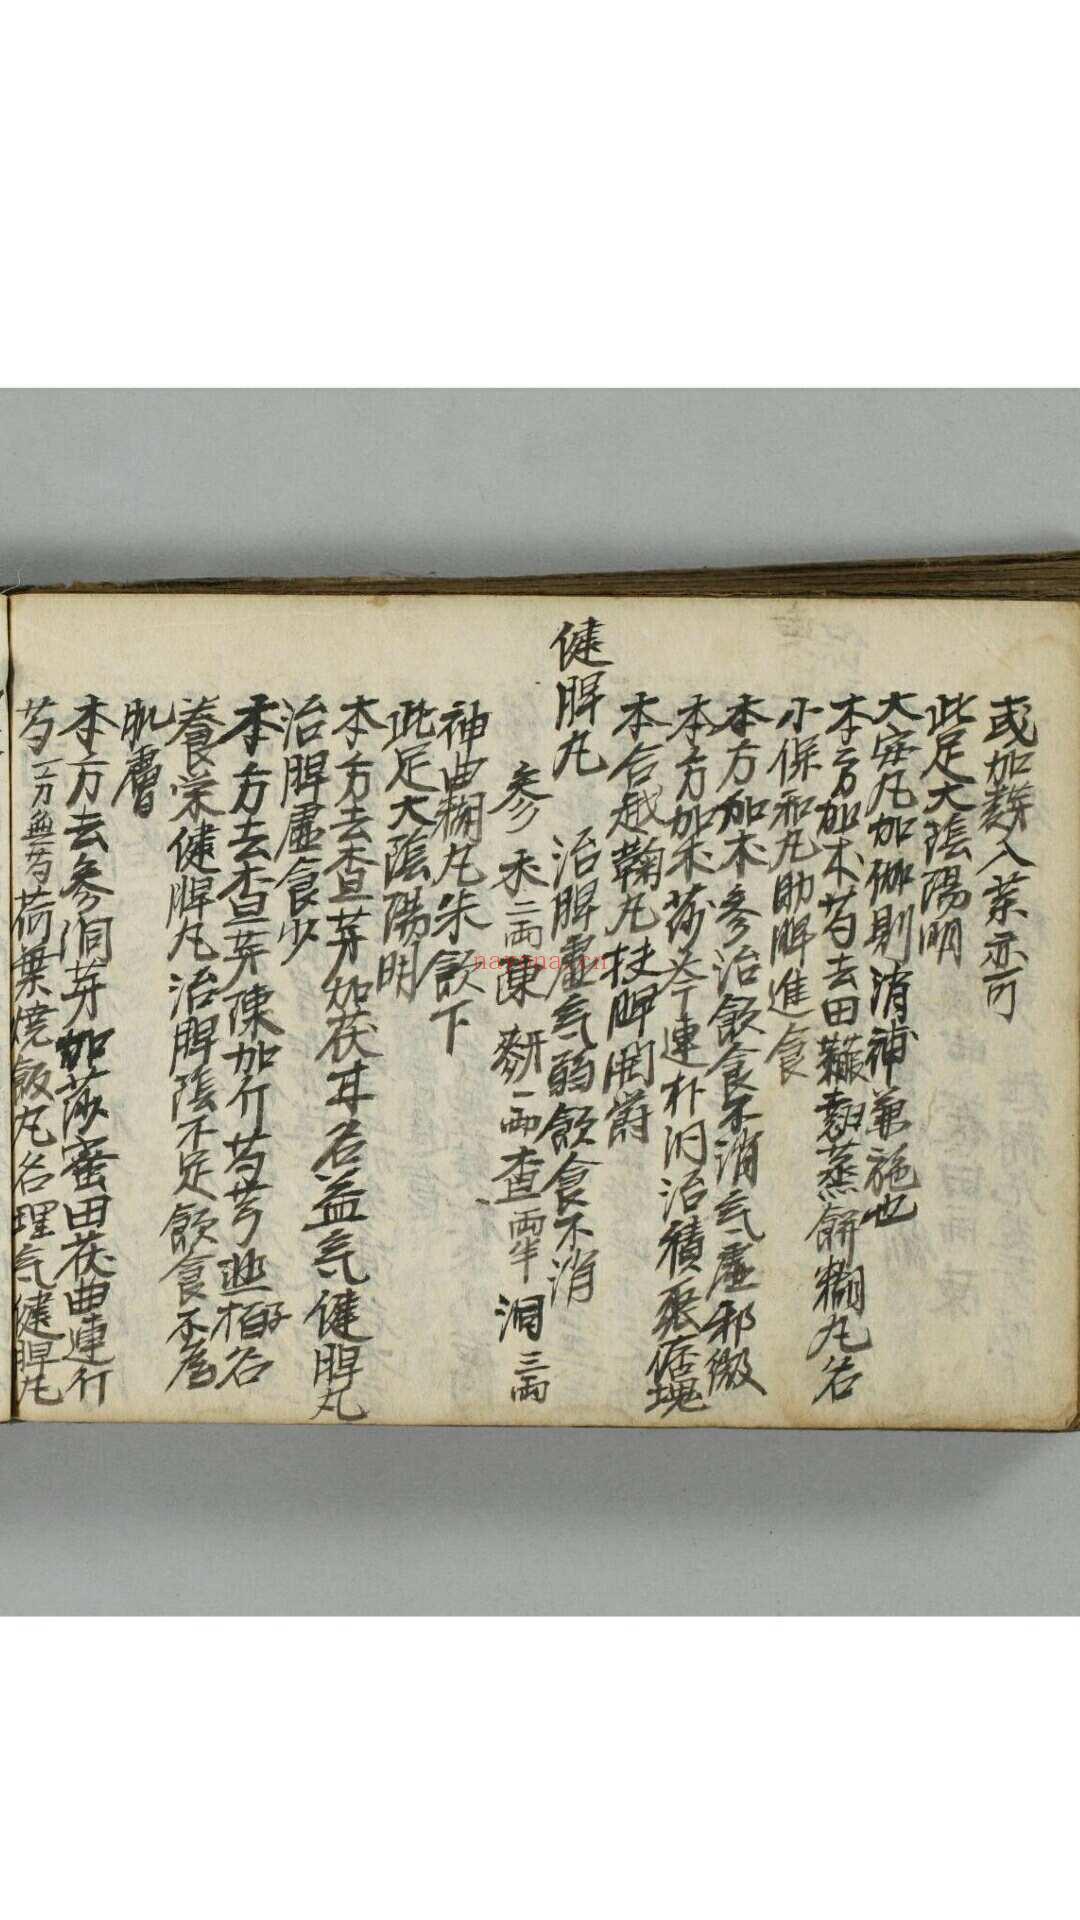 或加麰入藥亦可
此足大陰陽明
大安丸加 則消補兼施也
本方加朮芍去田 麯蒸餅糊丸名
小保和丸助脾進食
本方加朮參治飲食不消气虛邪微
本方加朮莎芩連朴 治積聚痞塊
本合越鞠丸扶脾開欝
健脾丸 治脾虛气弱飲食不消
參 朮二兩陳 一兩查兩半 三兩
神曲糊丸 飲下
此足大陰陽明
本方去查芽加茯甘名益气健脾丸
治脾虛食少
本方去查芽陳加 芍芎 柏子名
養荣健脾丸治脾陰不足飲食不為
肌膚
本方去參 芽加莎 田茯曲連
芍 荷葉燒飯丸名理气健脾丸
nayona.cn